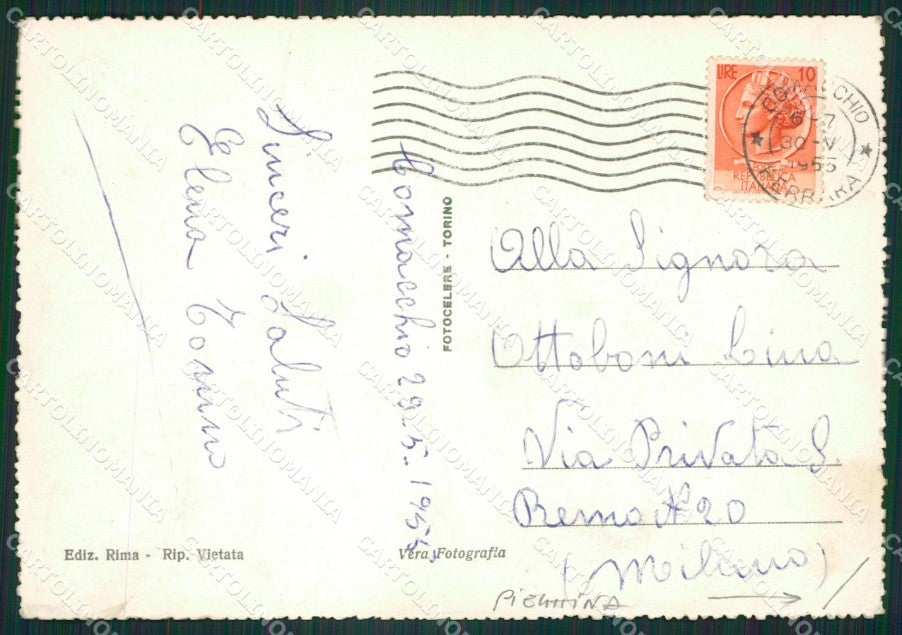 Sinceri Saluti
Elena Tomino
Comacchio 29-5-1955
FOTOCELERE - TORINO
LIRE 10
REPUBBLICA
ITALIANA
COMACCHIO
6-7
30-V
1955
FERRARA
Alla Signora
Ottoboni Lina
Via Privata S.
Remo N° 20
(Milano)
Ediz. Rima - Rip. Vietata
Vera Fotografia
CARTOLINOMANIA